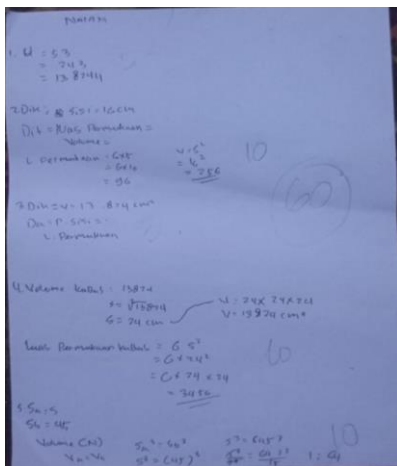 1. V = S3
= 243
= 13.8244
2. Dik : sisi = 16 cm
Dit = Luas Permukaan =
Volume =
L. Permukaan = 6x5
= 96
V = S²
= 256
10
3. Dik = V = 13.824 cm³
Dit = P. Sisi =
L. Permukaan
60
4. Volume kubus = 13824
S = 24 cm
V = 24 x 24 x 24
V = 13824 cm³
Luas Permukaan kubus = 6 S²
= 6 x 24²
= 6 x 24 x 24
= 3456
10
5. Sa = S
Sb = 4S
Volume
Va = Vb
Sa³ = Sb³
S³ = (4S)³
S³ = (4S)³
1 = 64
10